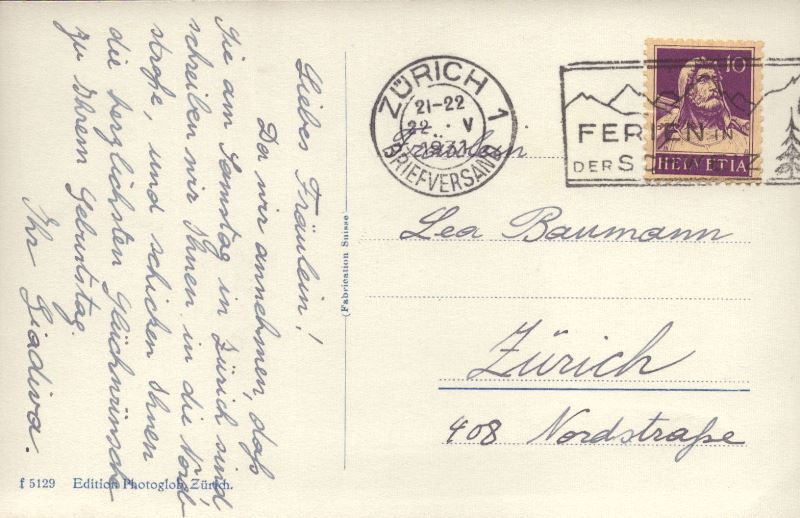 Liebes Fräulein!
Da wir annehmen, daß
Sie am Samstag in Zürich sind
schreiben wir Ihnen in die Nord-
straße, und schicken Ihnen
die herzlichsten Glückwünsche
zu Ihrem Geburtstag.
Ihr
(Fabrication Suisse)
f 5129 Edition Photoglob, Zürich.
ZÜRICH 1
21-22
22. V
1931
BRIEFVERSAND
FERIEN IN
DER SCHWEIZ
10
HELVETIA
Fräulein
Lea Baumann
Zürich
408 Nordstraße